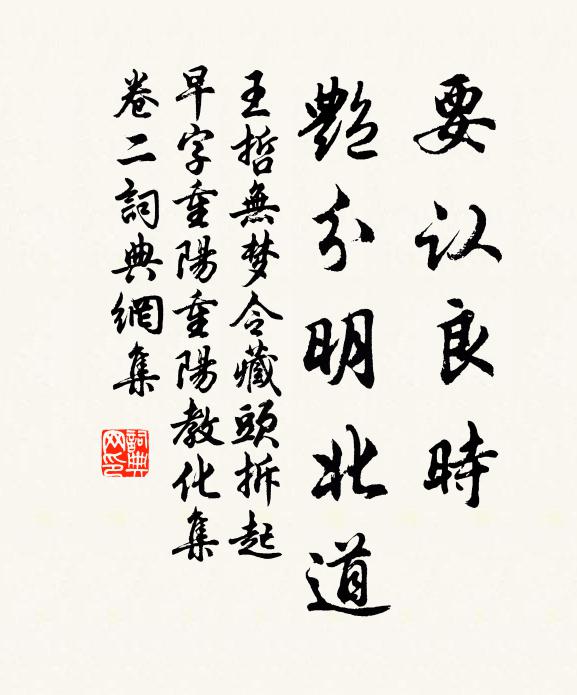 要认良時
艷分明北道
王哲無梦令藏頭拆起
早字重陽重陽教化集
卷二詞典網集
詞典网印